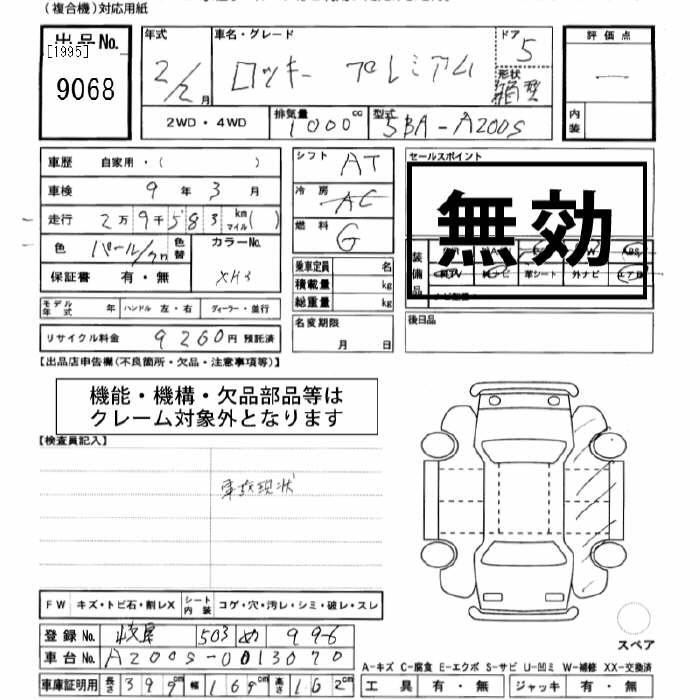 (複合機)対応用紙
出品No.
[1995]
9068
年式 2/2月
車名・グレード ロッキー プレミアム
ドア 5
形状 箱型
評価点
内装
2WD・4WD
排気量 1000cc
型式 5BA-A200S
車歴 自家用・( )
車検 9年3月
走行 2万9千583 km マイル( )
色 パール/クロ 色替
カラーNo. XH3
保証書 有・無
モデル年式 年 ハンドル 左・右 ディーラー・並行
リサイクル料金 9260円 預託済
シフト AT
冷房 AC
燃料 G
乗車定員 名
積載量 kg
総重量 kg
名変期限 月 日
セールスポイント
無効
装備品
革シート 外ナビ
後日品
【出品店申告欄(不良箇所・欠品・注意事項等)】
機能・機構・欠品部品等は
クレーム対象外となります
【検査員記入】
事故現状
FW キズ・トビ石・割レX シート内装 コゲ・穴・汚レ・シミ・破レ・スレ
登録No. 岐阜 503 め 996
車台No. A200S-0013070
車庫証明用 長さ 399 幅 169 高さ 162cm
スペア
A-キズ C-腐食 E-エクボ S-サビ U-凹ミ W-補修 XX-交換済
工具 有・無 ジャッキ 有・無